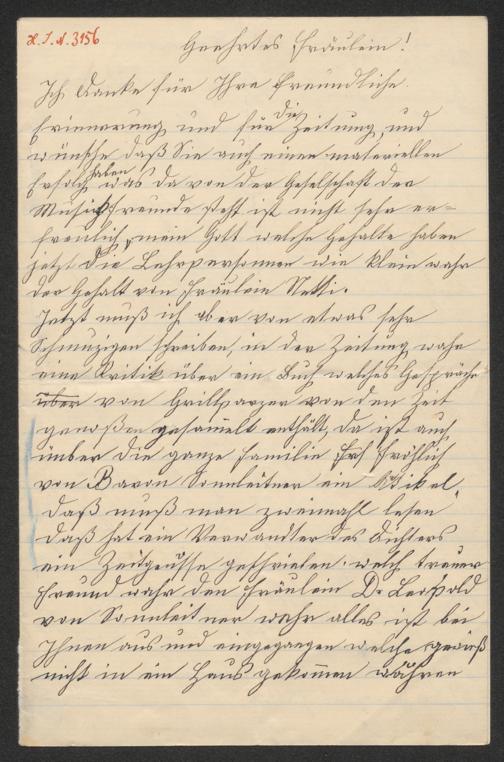 H.I.N. 3156
Geehrtes Fräulein!
Ich Danke für Ihre freundliche
Erinnerung und für die Zeitung, und
wünsche daß Sie auch einen materiellen
Erfolg haben was da von der Geselschaft der
Musickfreunde steht ist nicht sehr er=
freulich, mein Gott welche Gehalte haben
jetzt die Lehrpersonnen wie klein wahr
der Gehalt von Fräulein Netti.
Jetzt muß ich aber von etwas sehr
Schmuzigen schreiben, in der Zeitung wahr
eine Kritik über ein Buch welches Gespräche
über von Grillparzer von den Zeit
genoßen gesamelt enthält, da ist auch
über die ganze Familie Fröhlich
von Baron Sonnleitner ein Artikel,
daß muß man zweimahl lesen
daß hat ein Verwandter des Dichters
ein Zeitgenosse geschrieben. welch treuer
Freund wahr den Fräulein Dr Leopold
von Sonnleitner wehr alles ist bei
Ihnen aus und eingegangen welche gewieß
nicht in ein Haus gekommen währen